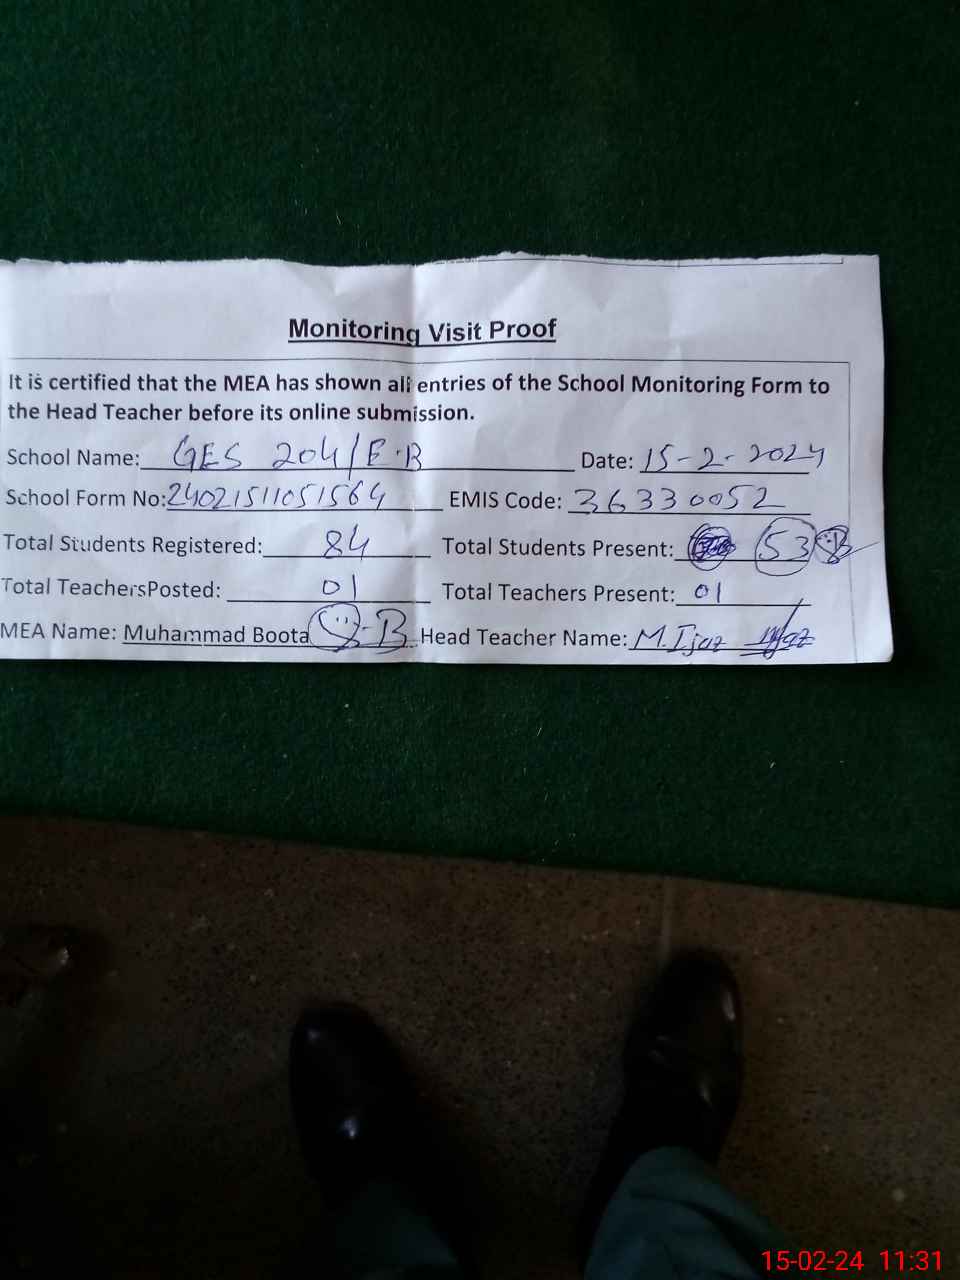 Monitoring Visit Proof
It is certified that the MEA has shown all entries of the School Monitoring Form to
the Head Teacher before its online submission.
School Name: GES 204/E.B Date: 15-2-2024
School Form No: 24021511051564 EMIS Code: 36330052
Total Students Registered: 84 Total Students Present: 53
Total TeachersPosted: 01 Total Teachers Present: 01
MEA Name: Muhammad Boota Head Teacher Name: M.Ijaz
15-02-24 11:31